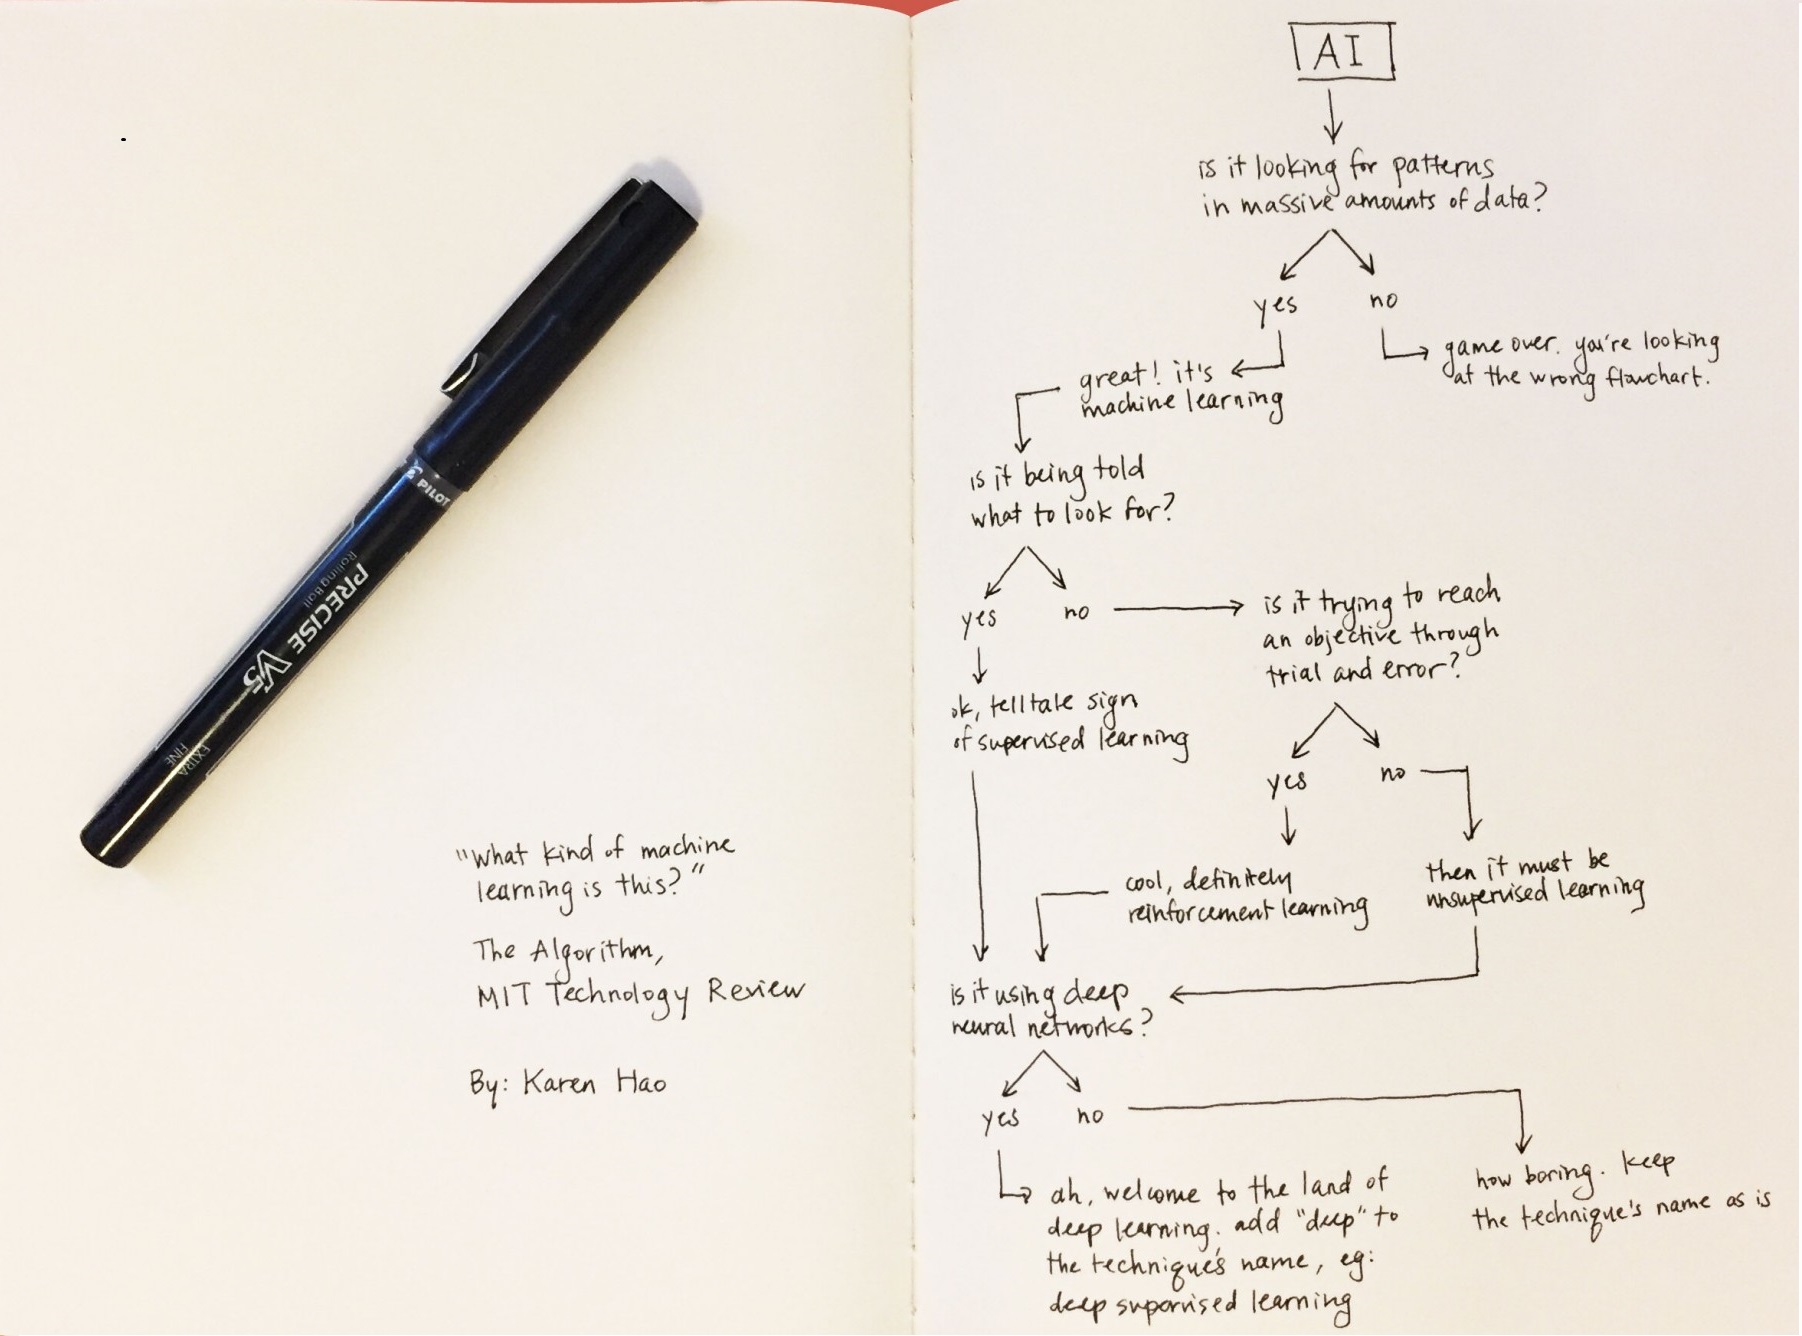 PILOT
PRECISE V5
Rolling Ball
EXTRA
FINE
"What kind of machine
learning is this?"
The Algorithm,
MIT Technology Review
By: Karen Hao
AI
is it looking for patterns
in massive amounts of data?
yes
no
game over. you're looking
at the wrong flowchart.
great! it's
machine learning
is it being told
what to look for?
yes
no
is it trying to reach
an objective through
trial and error?
ok, telltale sign
of supervised learning
yes
no
cool, definitely
reinforcement learning
then it must be
unsupervised learning
is it using deep
neural networks?
yes
no
ah, welcome to the land of
deep learning. add "deep" to
the technique's name, eg:
deep supervised learning
how boring. keep
the technique's name as is